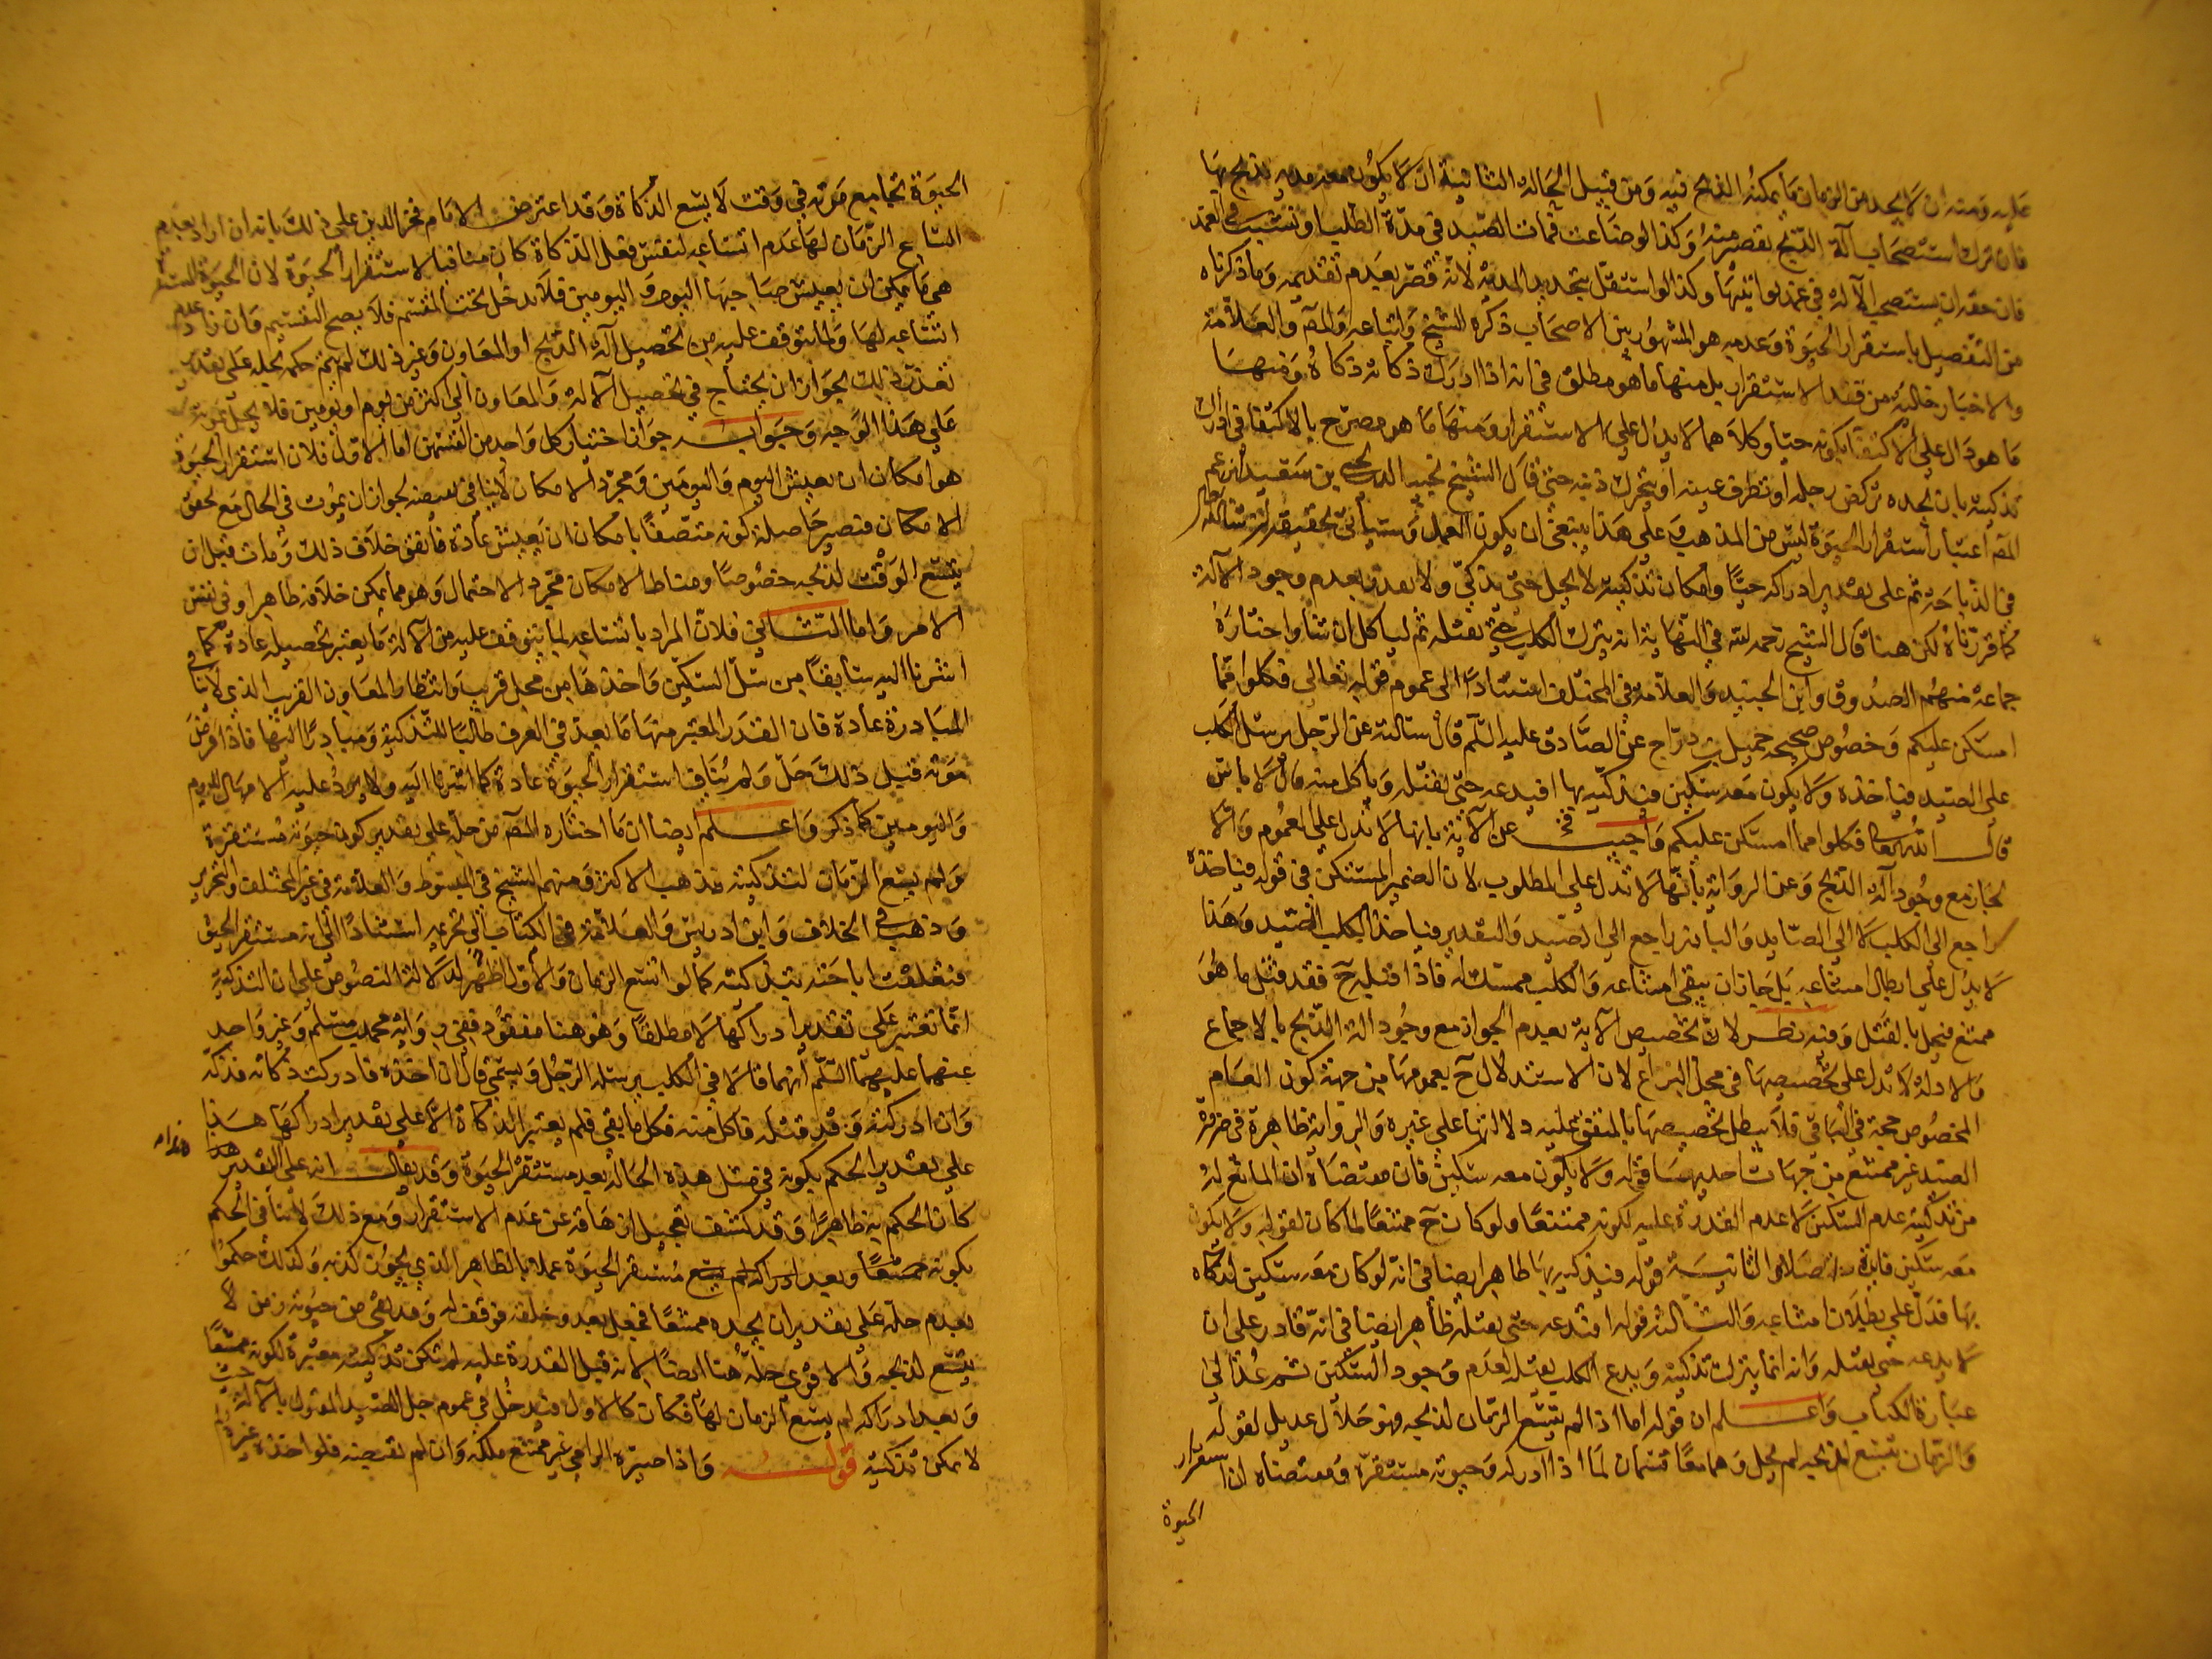 عليه ومنه ان لا يجد من الزمان ما يمكنه الذبح فيه ومن قبيل الحالة الثانية ان لا يكون معه مدية يذبح بها
فان ترك استصحاب آلة الذبح تقصير منه وكذا لو ضاعت فمات الصيد في مدة الطلب او نشبت في الغمد
فان حقه ان يستصحب الآلة في غمد يواتيها وكذا لو اشتغل بتحديد المدية لانه قصر بعدم تقديمه وما ذكرناه
من التفصيل باستقرار الحيوة وعدمه هو المشهور بين الاصحاب ذكره الشيخ واتباعه والمص والعلامة
والاخبار خالية من قيد الاستقرار بل منها ما هو مطلق في انه اذا ادرك ذكاته ذكاه ومنها
ما هو دال على الاكتفا بكونه حيا وكلاهما لا يدل على الاستقرار ومنها ما هو مصرح بالاكتفا في ادراك
تذكيته بان يجده تركض رجله او تطرف عينه او يتحرك ذنبه حتى قال الشيخ نجيب الدين يحيى بن سعيد ابن عم
المص اعتبار استقرار الحيوة ليس من المذهب وعلى هذا ينبغي ان يكون العمل وسيأتي تحقيقه ان شاالله
في الذباحة ثم على تقدير ادراكه حيا وامكان تذكيته لا يحل حتى يذكى ولا يعذر بعدم وجود الآلة
كما قررناه لكن هنا قال الشيخ رحمه الله في النهاية انه يترك الكلب حتى يقتله ثم لياكل ان شأ واختاره
جماعة منهم الصدوق وابن الجنيد والعلامة في المختلف استنادا الى عموم قوله تعالى فكلوا مما
امسكن عليكم وخصوص صحيحة جميل بن دراج عن الصادق عليه السلم قال سالته عن الرجل يرسل الكلب
على الصيد فياخذه ولا يكون معه سكين فيذكيه بها افيدعه حتى يقتله وياكل منه قال لا باس
قال الله تعا فكلوا مما امسكن عليكم واجيب عن الآية بانها لا تدل على العموم والا
لجاز مع وجود آلة الذبح وعن الرواية بانها لا تدل على المطلوب لان الضمير المستكن في قوله فياخذه
راجع الى الكلب لا الى الصايد والبارز راجع الى الصيد والتقدير فياخذ الكلب الصيد وهذا
لا يدل على ابطال امتناعه بل جاز ان يبقى امتناعه والكلب ممسك له فاذا قتله ح فقد قتل ما هو
ممتنع فيحل بالقتل وفيه نظر لان تخصيص الآية بعدم الجواز مع وجود آلة الذبح بالاجماع
والادلة لا تدل على تخصيصها في محل النزاع لان الاستدلال ح بعمومها من جهة كون العام
المخصوص حجة في الباقي فلا يبطل تخصيصها بالمتفق عليه دلالتها على غيره والرواية ظاهرة في صيرورة
الصيد غير ممتنع من جهات احديها قوله ولا يكون معه سكين فان مقتضاه ان المانع له
من تذكيته عدم السكين لا عدم القدرة عليه لكونه ممتنعا ولو كان ح ممتنعا لما كان لقوله ولا يكون
معه سكين فايدة اصلا والثانية قوله فيذكيه بها ظاهر ايضا في انه لو كان معه سكين لذكاه
بها فدل على بطلان امتناعه والثالثة قوله افيدعه حتى يقتله ظاهر ايضا في انه قادر على ان
لا يدعه حتى يقتله وانه انما يترك تذكيته ويدع الكلب يقتله لعدم وجود السكين ثم عد الى
عبارة الكتاب واعلم ان قوله اما اذا لم يتسع الزمان لذبحه فهو حلال عديل لقوله
والزمان يتسع لذبحه لم يحل وهما معا قسمان لما اذا ادركه وحيوته مستقرة ومقتضاه ان استقرار
الحيوة
الحيوة تجامع موته في وقت لا يسع الذكاة وقد اعترض الامام فخر الدين على ذلك بانه ان اراد بعدم
اتساع الزمان لها عدم اتساعه لنفس فعل الذكاة كان منافيا لاستقرار الحيوة لان الحيوة المستقرة
هي ما يمكن ان يعيش صاحبها اليوم واليومين فلا يدخل تحت المقسم فلا يصح التقسيم وان اراد عدم
اتساعه لها ولما يتوقف عليه من تحصيل آلة الذبح او المعاون وغير ذلك لم يتم حكمه بحله على تقدير
تعذر ذلك لجواز ان يحتاج في تحصيل الآلة والمعاون الى اكثر من يوم او يومين فلا يحل بموته
على هذا الوجه وجوابه جواز اختيار كل واحد من القسمين اما الاول فلان استقرار الحيوة
هو امكان ان يعيش اليوم واليومين ومجرد الامكان لا ينافي نقيضه لجواز ان يموت في الحال مع تحقق
الامكان فيصير حاصله كونه متصفا بامكان ان يعيش عادة فاتفق خلاف ذلك ومات قبل ان
يتسع الوقت لذبحه خصوصا ومناط الامكان مجرد الاحتمال وهو مما يمكن خلافه ظاهرا وفي نفس
الامر واما الثاني فلان المراد باتساعه لما يتوقف عليه من الآلة ما يعتبر تحصيله عادة كما
اشرنا اليه سابقا من سل السكين واخذها من محل قريب وانتظار المعاون القريب الذي لا ينافي
المبادرة عادة فان القدر المعتبر منها ما يعد في العرف طالبا للتذكية ومبادرا اليها فاذا فرض
موته قبل ذلك حل ولم يناف استقرار الحيوة عادة كما اشرنا اليه ولا يرد عليه الامهال لليوم
واليومين كما ذكر واعلم ايضا ان ما اختاره المص من حله على تقدير كون حيوته مستقرة
ولم يسع الزمان لتذكيته مذهب الاكثر ومنهم الشيخ في المبسوط والعلامة في غير المختلف والتحرير
وذهب في الخلاف وابن ادريس والعلامة في الكتابين الى تحريمه استنادا الى انه مستقر الحيوة
فتعلقت اباحته بتذكيته كما لو اتسع الزمان والاول اظهر لدلالة النصوص على ان التذكية
انما تعتبر على تقدير ادراكها لا مطلقا وهو هنا مفقود ففي رواية محمد بن مسلم وغير واحد
عنهما عليهما السلم انهما قالا في الكلب يرسله الرجل ويسمي قال ان اخذه فادركت ذكاته فذكه
وان ادركته وقد قتله فاكل منه فكل ما بقي فلم يعتبر الذكاة الا على تقدير ادراكها هذا
على تقدير الحكم بكونه في مثل هذه الحالة يعد مستقر الحيوة وقد يقال انه على التقدير هذا
كان الحكم به ظاهرا وقد كشف تعجيل ازهاقه عن عدم الاستقرار ومع ذلك لا ينافي الحكم
بكونه مستقر الحيوة عملا بالظاهر الذي يجوز كذبه وكذلك حكموا
بعدم حله على تقدير ان يجده ممتنعا فجعل يعدو خلفه فوقف له وقد بقي من حيوته زمن لا
يتسع لذبحه والاقوى حله هنا ايضا لانه قبل القدرة عليه لم تكن تذكيته معتبرة لكونه ممتعنا
وبعد ادراكه لم يسع الزمان لها فكان كالاول فيدخل في عموم حل الصيد المقتول بالآلة حيث
لا يمكن تذكيته قوله واذا صيره الرامي غير ممتنع ملكه وان لم يقبضه فلو اخذه غيره